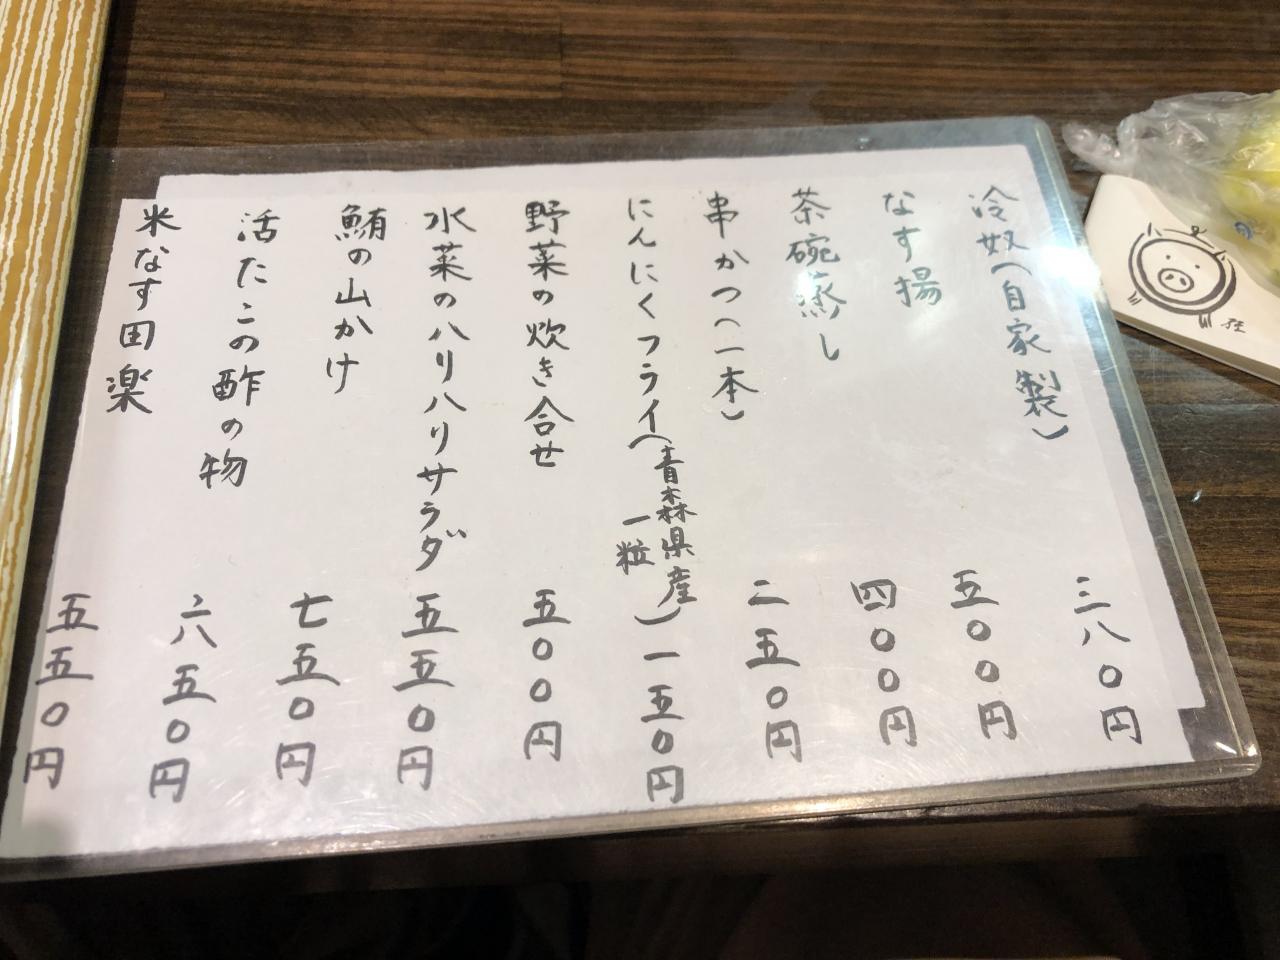 冷奴(自家製) 三八〇円
なす揚 五〇〇円
茶碗蒸し 四〇〇円
串かつ(一本) 二五〇円
にんにくフライ(青森県産)一粒 一五〇円
野菜の炊き合せ 五〇〇円
水菜のハリハリサラダ 五五〇円
鮪の山かけ 七五〇円
活たこの酢の物 六五〇円
米なす田楽 五五〇円